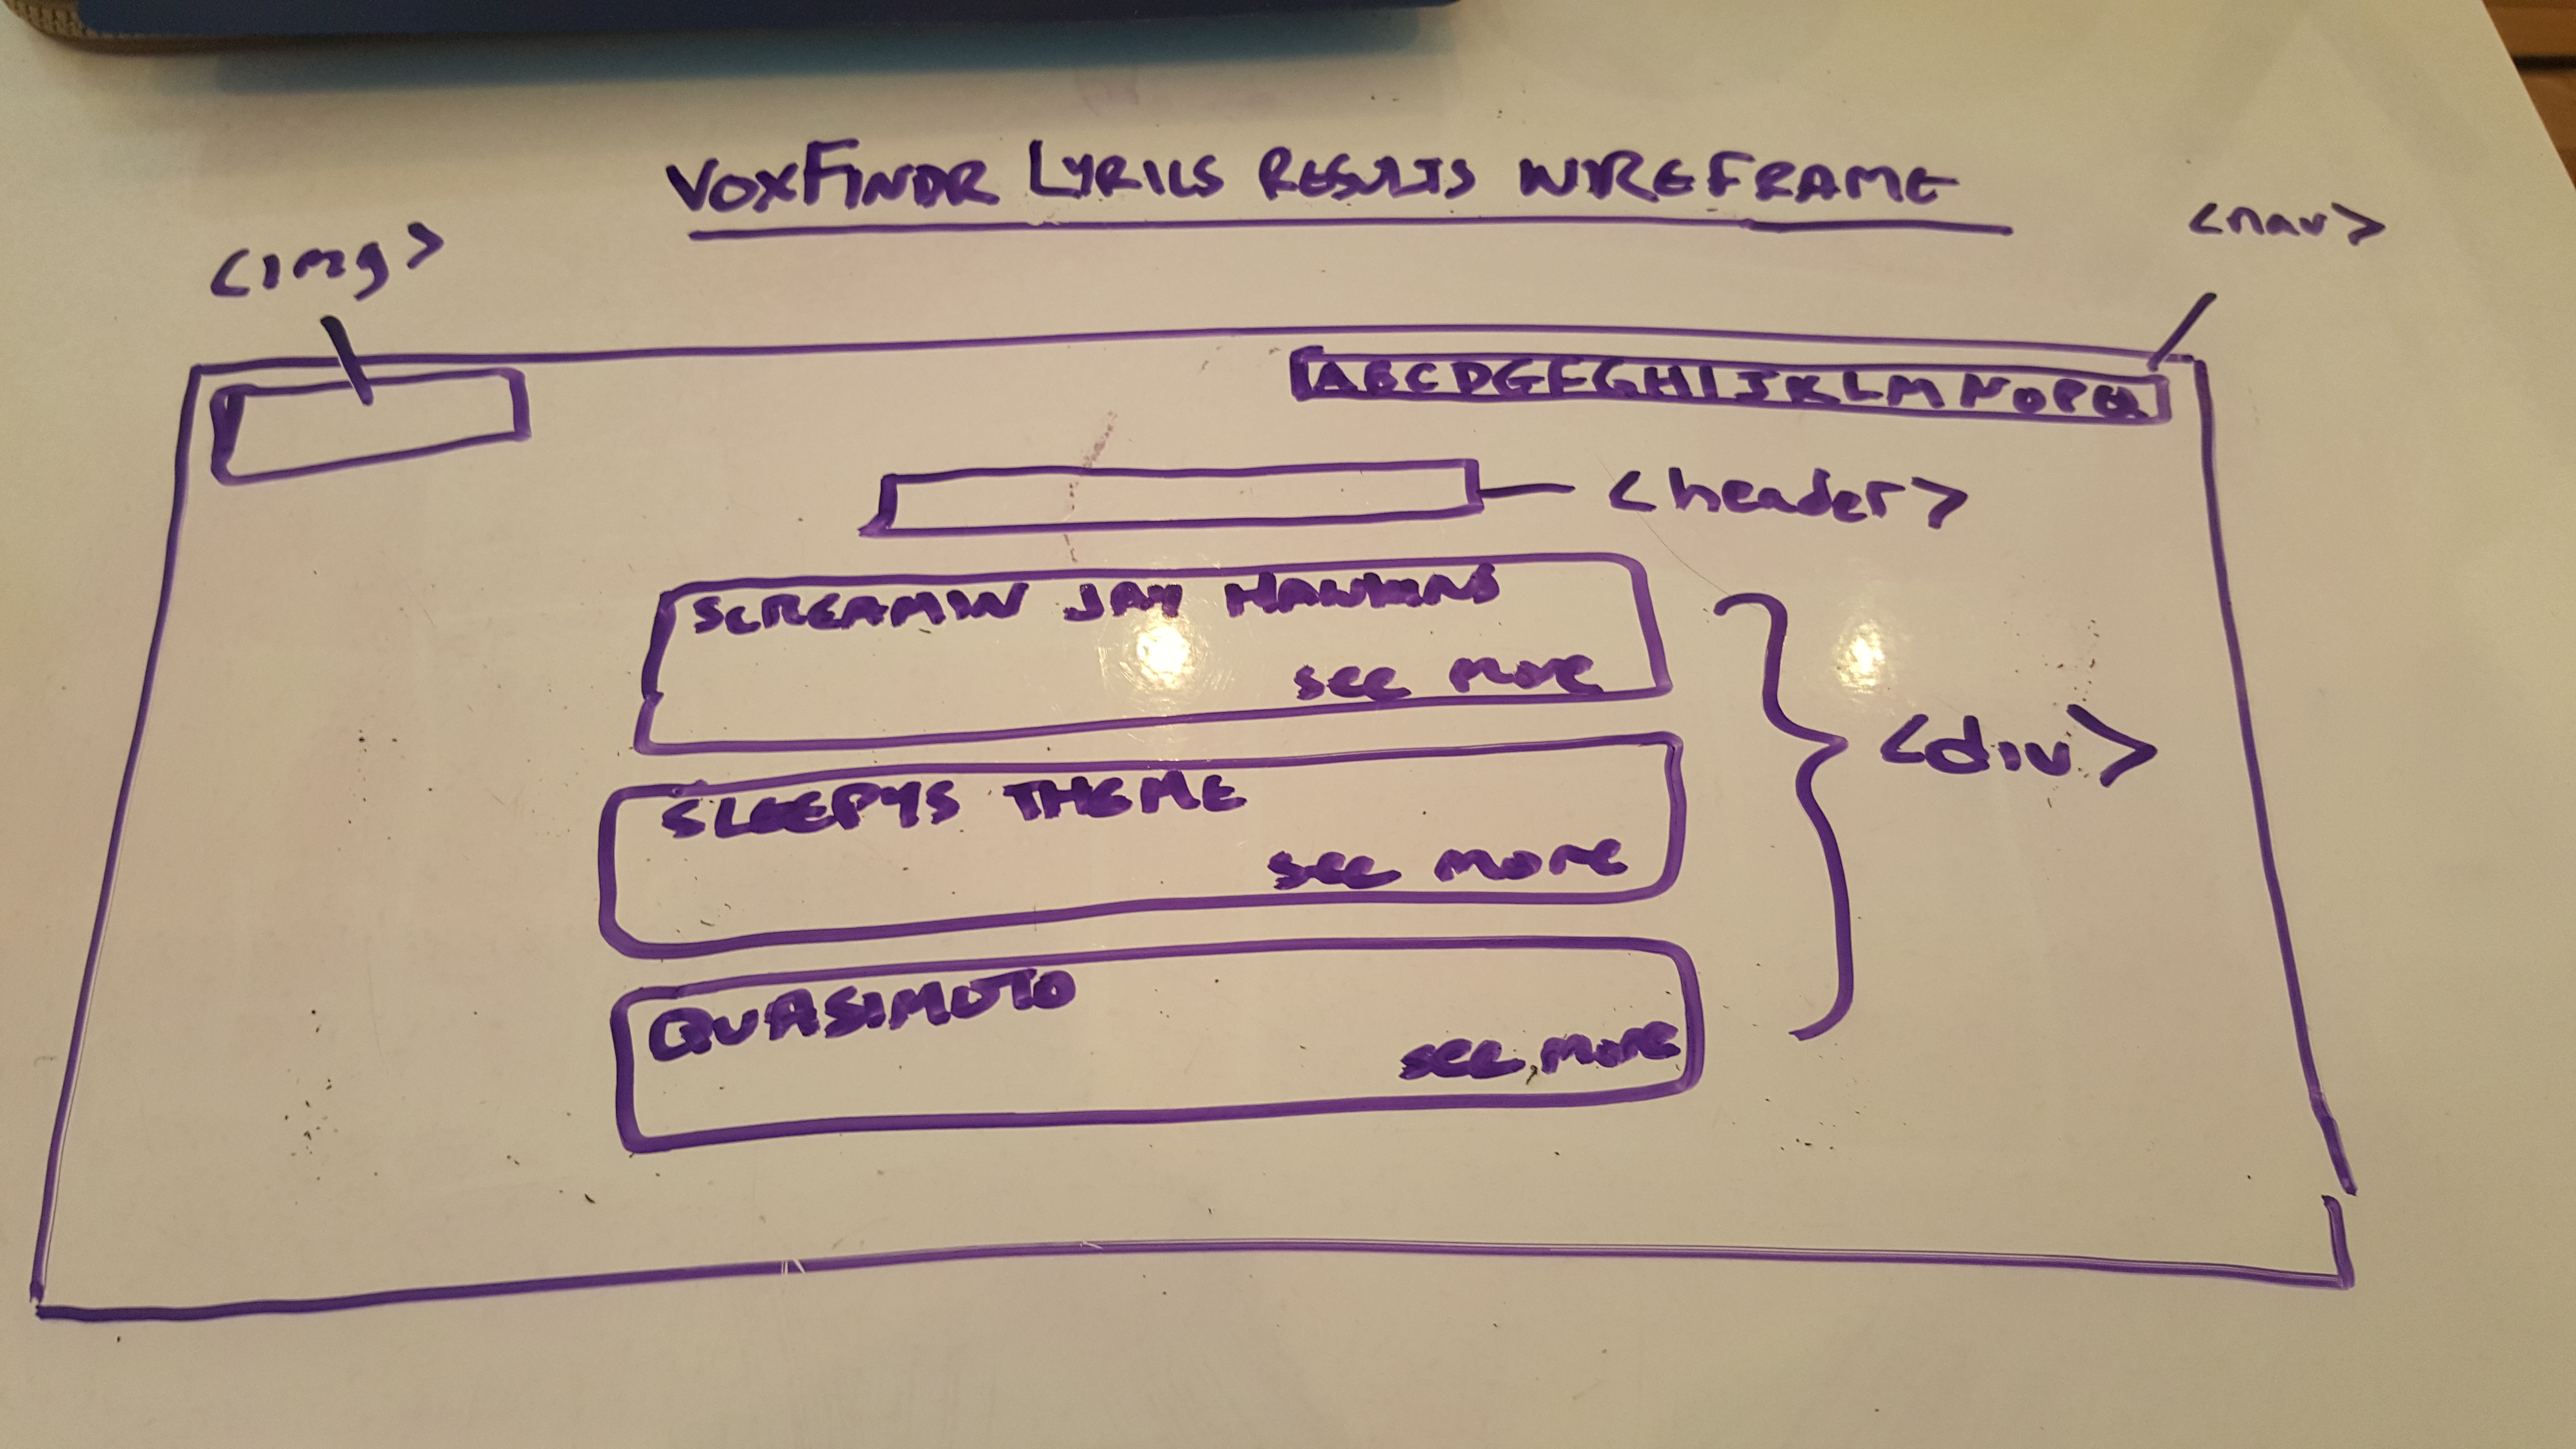 VOXFINDR LYRICS RESULTS WIREFRAME
<img>
<nav>
ABCDEFGHIJKLMNOPQ
<header>
SCREAMIN JAY HAWKINS
see more
<div>
SLEEPYS THEME
see more
QUASIMOTO
see more